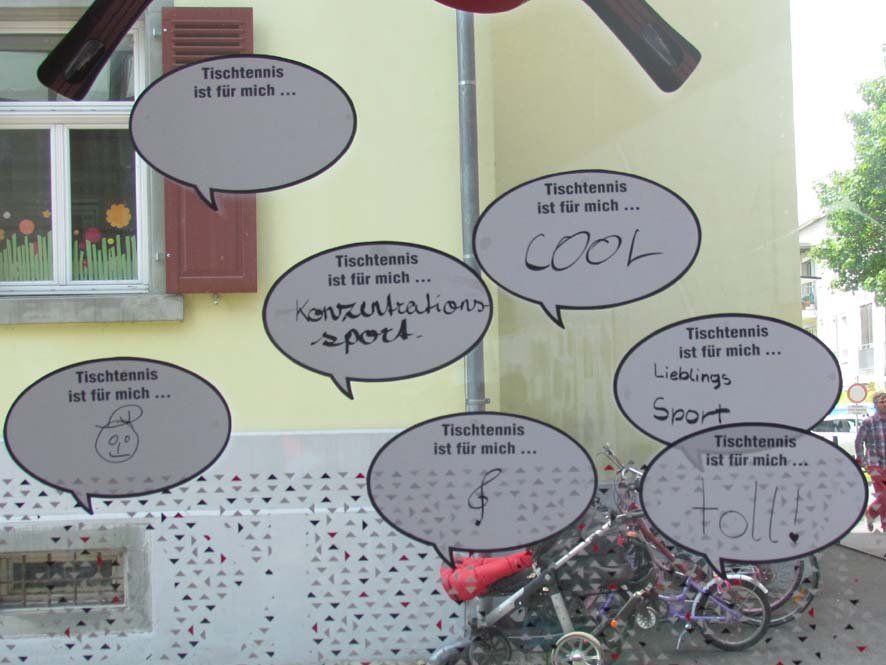 Tischtennis
ist für mich ...
Tischtennis
ist für mich ...
COOL
Tischtennis
ist für mich ...
Konzentrations
sport.
Tischtennis
ist für mich ...
Lieblings
Sport
Tischtennis
ist für mich ...
Tischtennis
ist für mich ...
Tischtennis
ist für mich ...
toll!